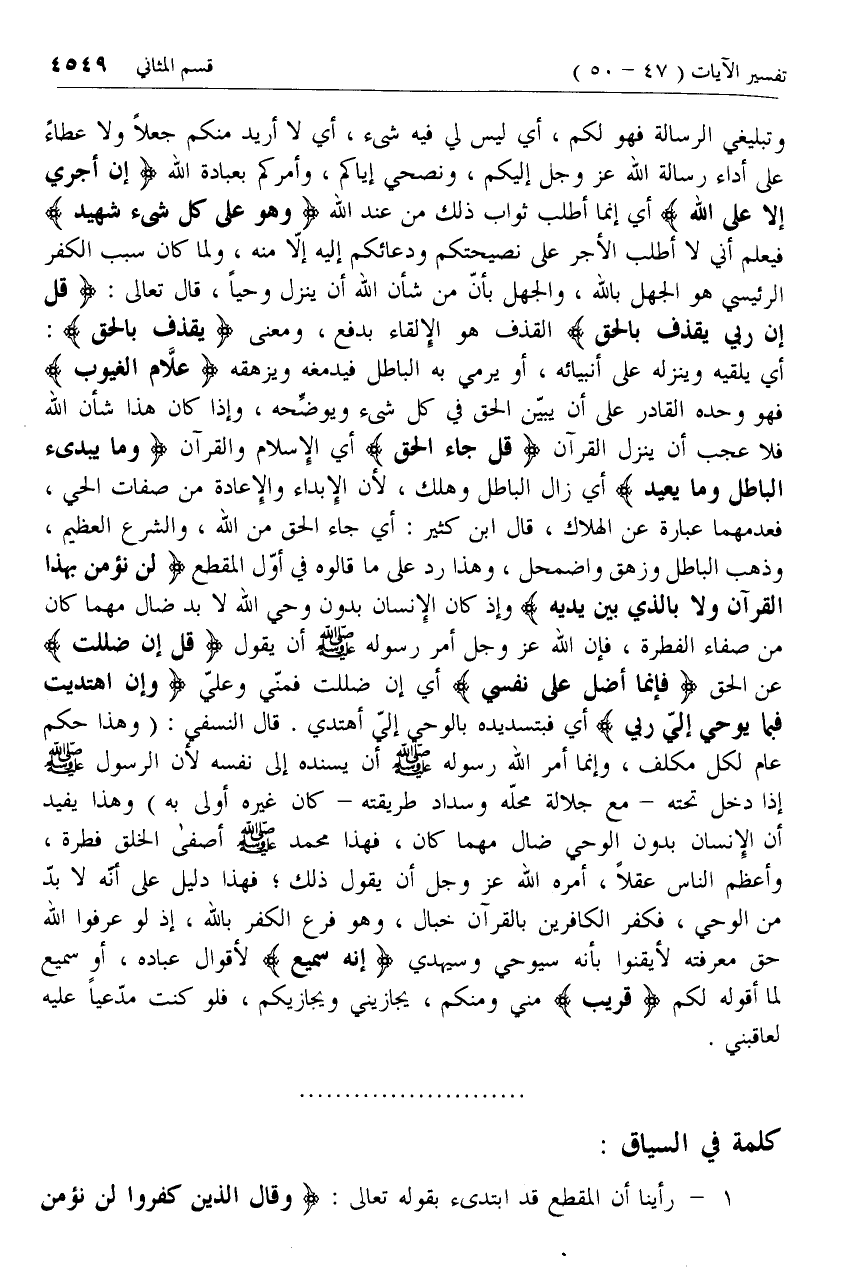 تفسير الآيات ( ٤٧ – ٥٠ ) قسم المثاني ٤٥٤٩
وتبليغي الرسالة فهو لكم ، أي ليس لي فيه شىء ، أي لا أريد منكم جعلاً ولا عطاءً
على أداء رسالة الله عز وجل إليكم ، ونصحي إياكم ، وأمركم بعبادة الله ﴿ إن أجري
إلا على الله ﴾ أي إنما أطلب ثواب ذلك من عند الله ﴿ وهو على كل شىء شهيد ﴾
فيعلم أني لا أطلب الأجر على نصيحتكم ودعائكم إليه إلّا منه ، ولما كان سبب الكفر
الرئيسي هو الجهل بالله ، والجهل بأنّ من شأن الله أن ينزل وحياً ، قال تعالى : ﴿ قل
إن ربي يقذف بالحق ﴾ القذف هو الإلقاء بدفع ، ومعنى ﴿ يقذف بالحق ﴾ :
أي يلقيه وينزله على أنبيائه ، أو يرمي به الباطل فيدمغه ويزهقه ﴿ علَّام الغيوب ﴾
فهو وحده القادر على أن يبيّن الحق في كل شىء ويوضّحه ، وإذا كان هذا شأن الله
فلا عجب أن ينزل القرآن ﴿ قل جاء الحق ﴾ أي الإسلام والقرآن ﴿ وما يبدىء
الباطل وما يعيد ﴾ أي زال الباطل وهلك ، لأن الإبداء والإعادة من صفات الحي ،
فعدمهما عبارة عن الهلاك ، قال ابن كثير : أي جاء الحق من الله ، والشرع العظيم ،
وذهب الباطل وزهق واضمحل ، وهذا رد على ما قالوه في أوّل المقطع ﴿ لن نؤمن بهذا
القرآن ولا بالذي بين يديه ﴾ وإذ كان الإنسان بدون وحي الله لا بد ضال مهما كان
من صفاء الفطرة ، فإن الله عز وجل أمر رسوله ﷺ أن يقول ﴿ قل إن ضللت ﴾
عن الحق ﴿ فإنما أضل على نفسي ﴾ أي إن ضللت فمنّي وعليّ ﴿ وإن اهتديت
فبما يوحي إليّ ربي ﴾ أي فبتسديده بالوحي إليّ أهتدي . قال النسفي : ( وهذا حكم
عام لكل مكلف ، وإنما أمر الله رسوله ﷺ أن يسنده إلى نفسه لأن الرسول ﷺ
إذا دخل تحته – مع جلالة محلّه وسداد طريقته – كان غيره أولى به ) وهذا يفيد
أن الإنسان بدون الوحي ضال مهما كان ، فهذا محمد ﷺ أصفىٰ الخلق فطرة ،
وأعظم الناس عقلاً ، أمره الله عز وجل أن يقول ذلك ؛ فهذا دليل على أنّه لا بدّ
من الوحي ، فكفر الكافرين بالقرآن خبال ، وهو فرع الكفر بالله ، إذ لو عرفوا الله
حق معرفته لأيقنوا بأنه سيوحي وسيهدي ﴿ إنه سميع ﴾ لأقوال عباده ، أو سميع
لما أقوله لكم ﴿ قريب ﴾ مني ومنكم ، يجازيني ويجازيكم ، فلو كنت مدّعياً عليه
لعاقبني .
.........................
كلمة في السياق :
١ – رأينا أن المقطع قد ابتدىء بقوله تعالى : ﴿ وقال الذين كفروا لن نؤمن